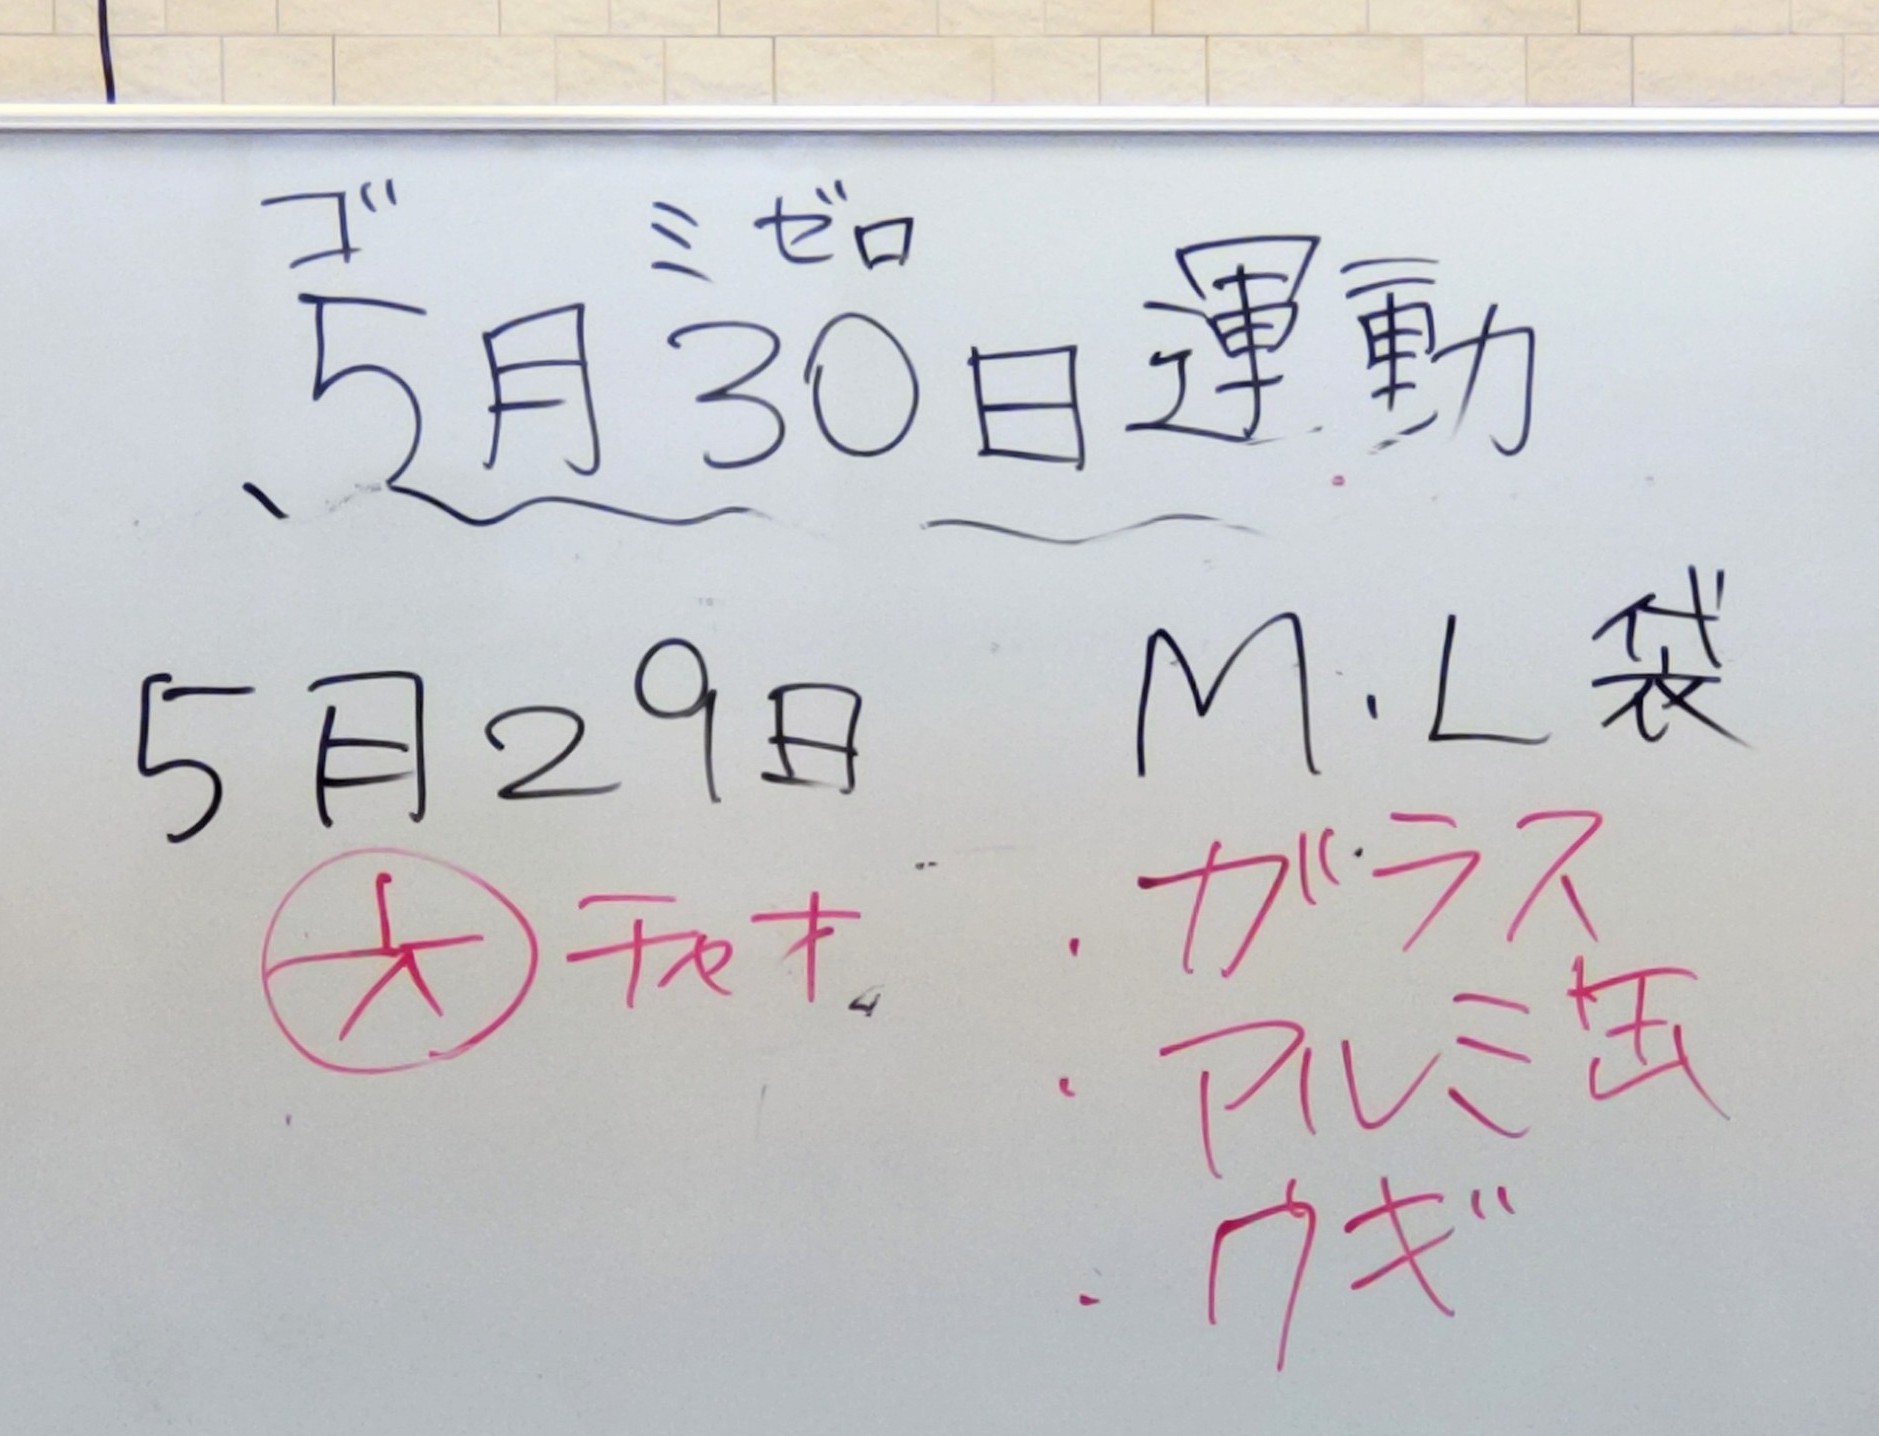 ゴ ミ ゼロ
5月30日運動
5月29日
大 チャオ
M.L袋
・ガラス
・アルミ缶
・クギ